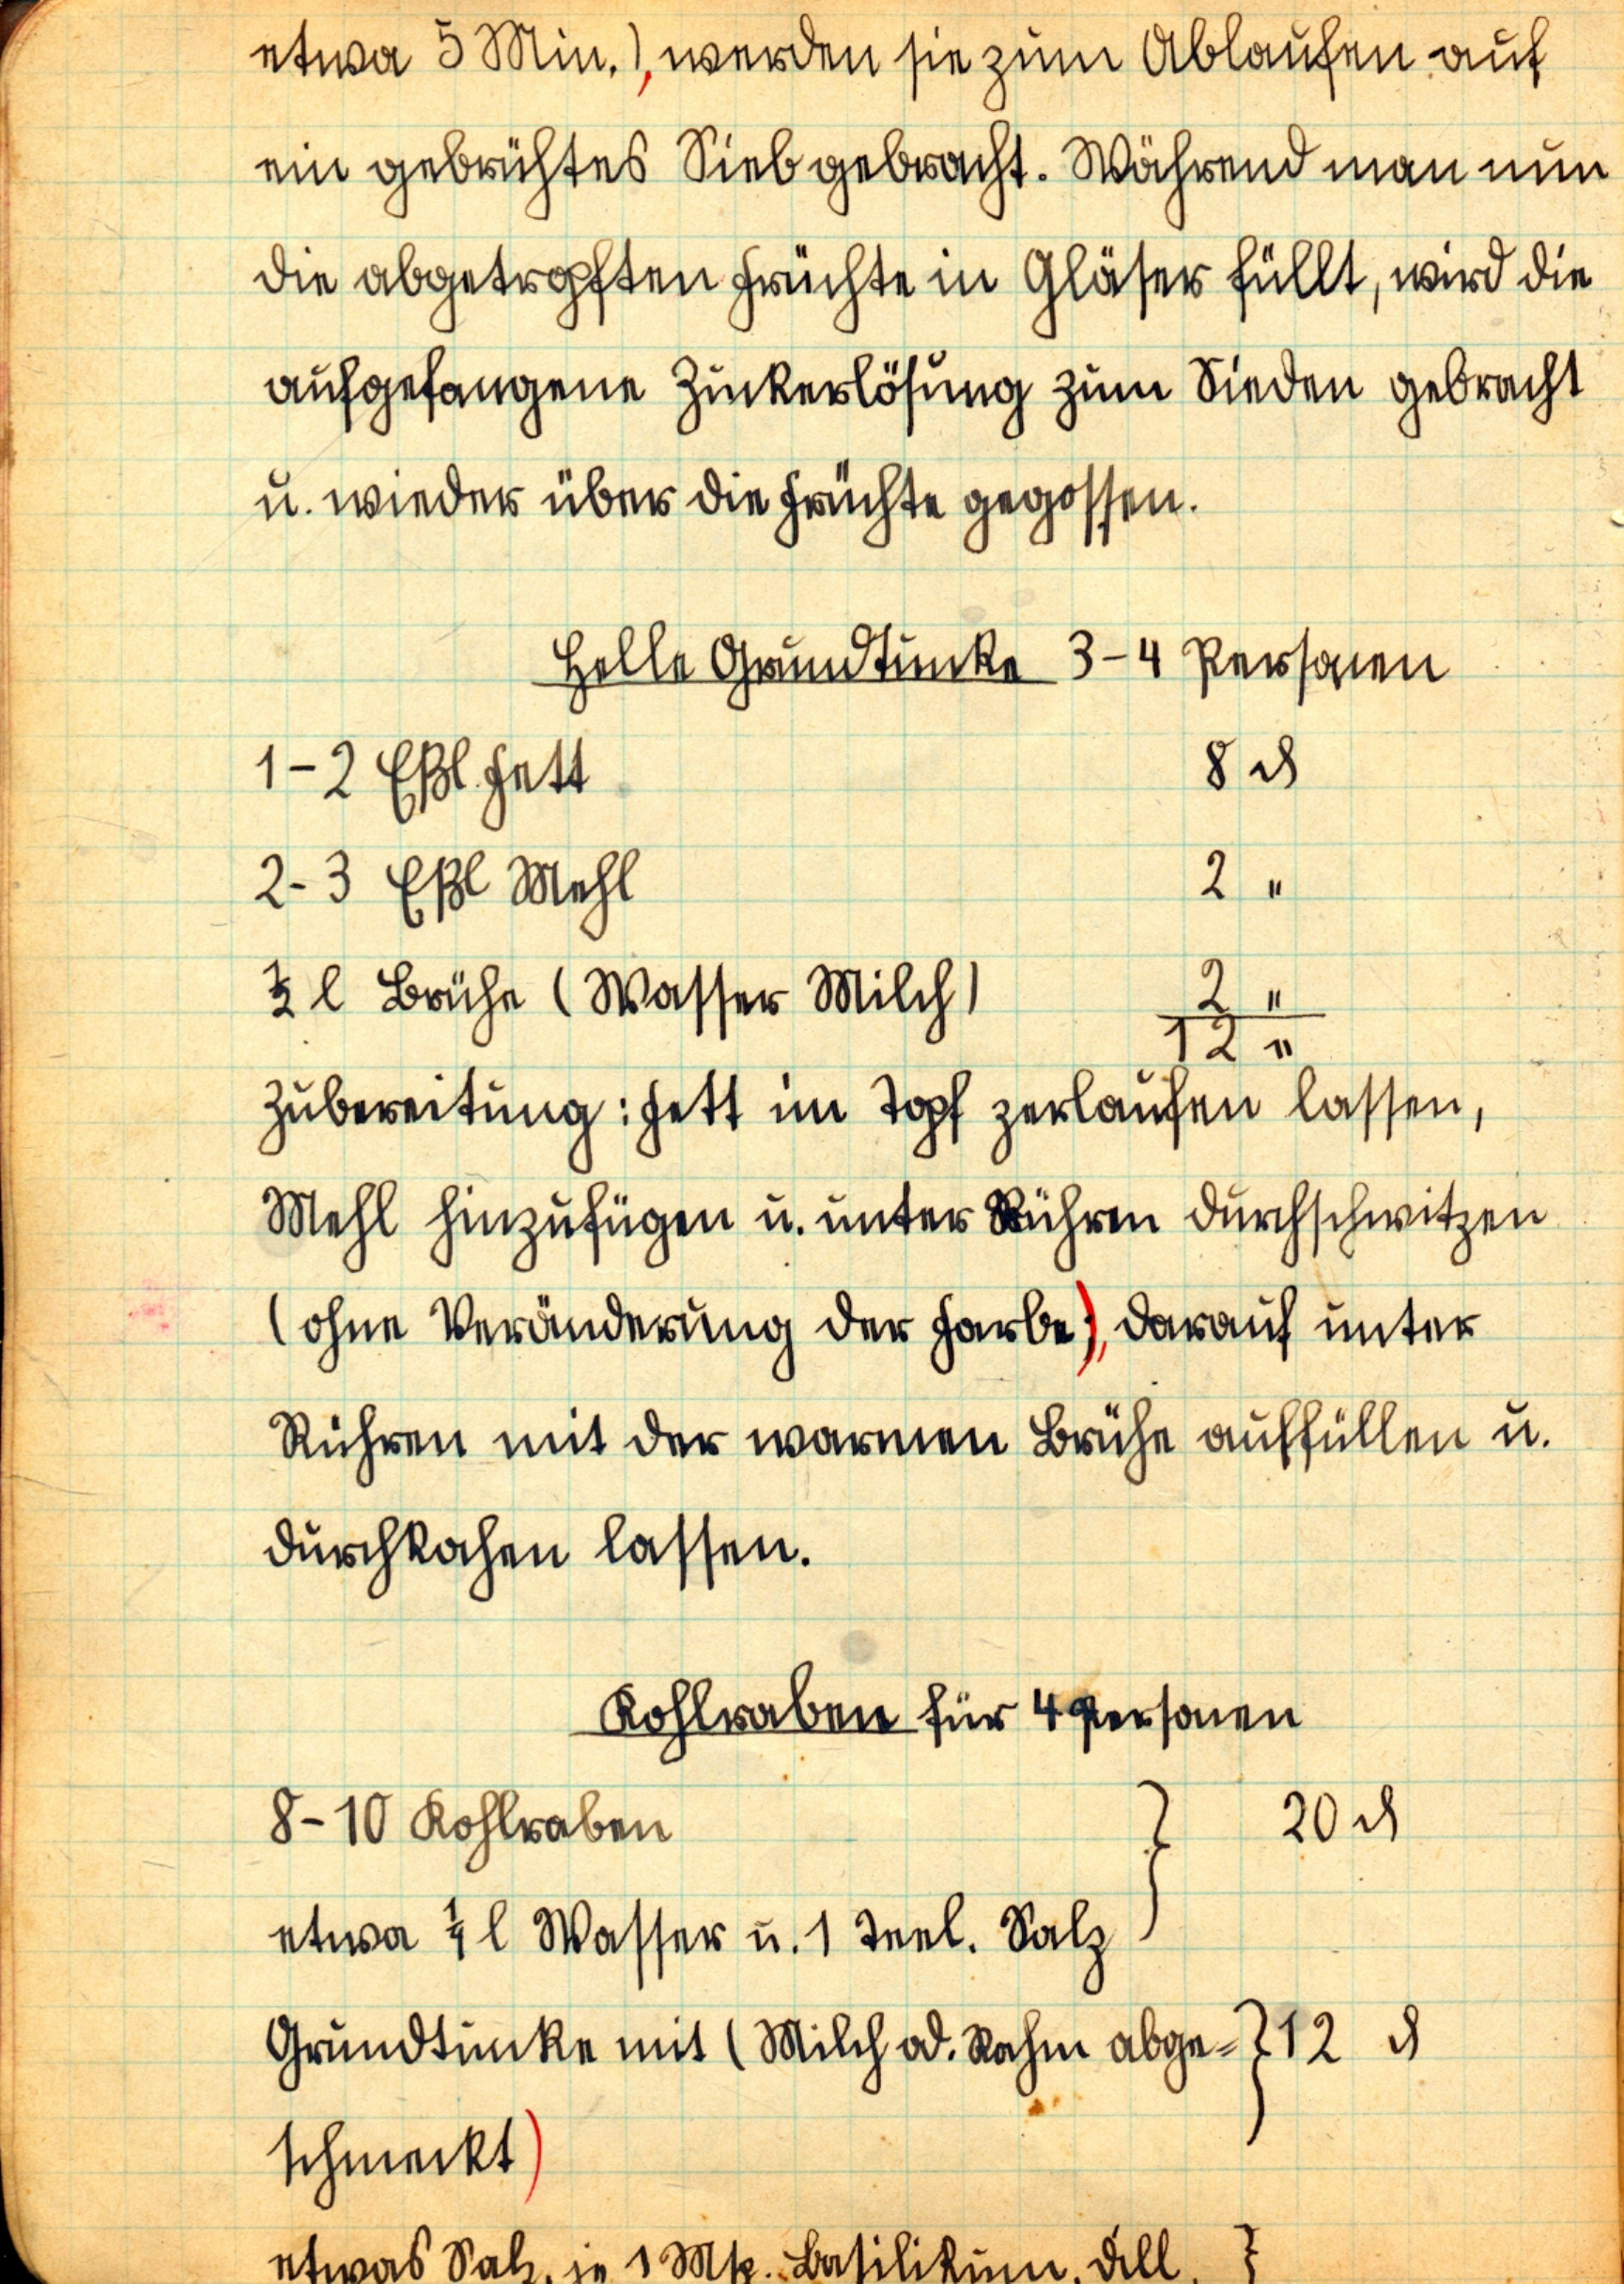 etwa 5 Min.), werden sie zum Ablaufen auf
ein gebrühtes Sieb gebracht. Während man nun
die abgetropften Früchte in Gläser füllt, wird die
aufgefangene Zuckerlösung zum Sieden gebracht
u. wieder über die Früchte gegossen.
Helle Grundtunke 3-4 Personen
1-2 Eßl. Fett 8 ₰
2-3 Eßl Mehl 2 "
½ l Brühe (Wasser Milch) 2 "
12 "
Zubereitung: Fett im Topf zerlaufen lassen,
Mehl hinzufügen u. unter Rühren durchschwitzen
(ohne Veränderung der Farbe), darauf unter
Rühren mit der warmen Brühe auffüllen u.
durchkochen lassen.
Kohlraben für 4 Personen
8-10 Kohlraben } 20 ₰
etwa ¼ l Wasser u. 1 Teel. Salz
Grundtunke mit (Milch od. Rahm abge- } 12 ₰
schmeckt)
etwas Salz, je 1 Msp. Basilikum, Dill, }